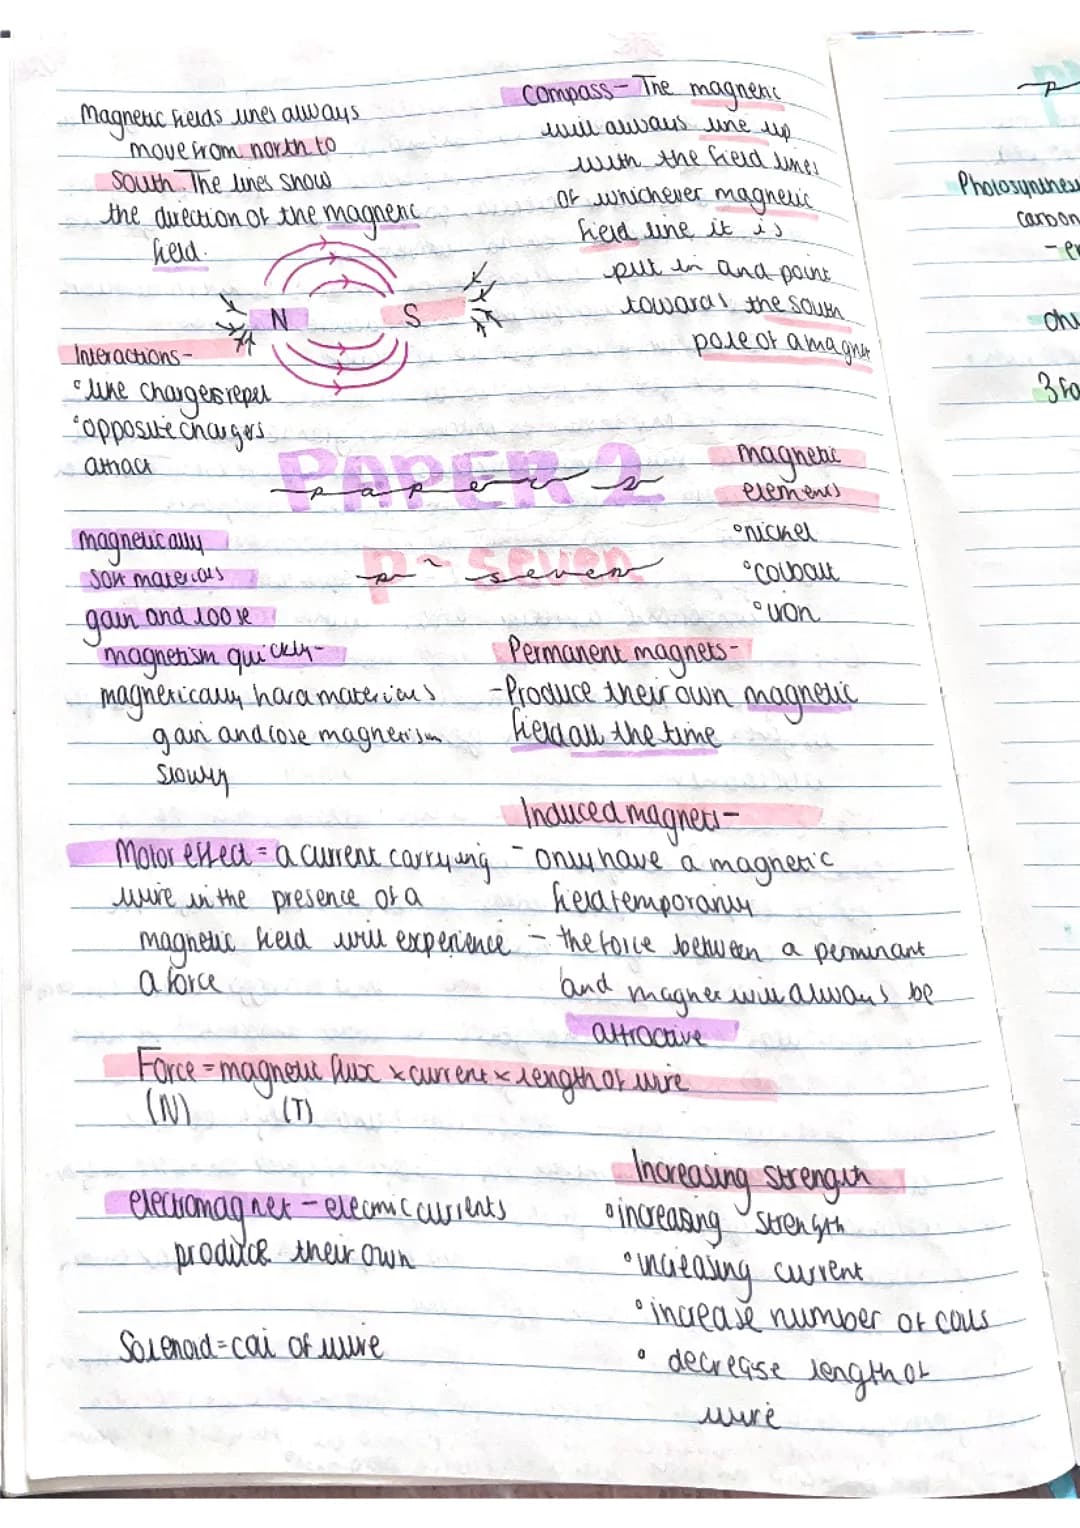 Magnetic fields lines always
move from north to
South. The lines show
the direction of the magnetic
field.
N S
Interactions-
°like chargers repel
°opposite chargers
attract
Compass- The magnetic
will always line up
with the field lines
of whichever magnetic
field line it is
put in and point
towards the south
pole of a magnet
PAPER 2
paper 2
P- seven
p- seven
magnetic
elements
°nickel
°colbalt
°iron
magnetically
soft materials
gain and loose
magnetism quickly-
magnetically hard materials
gain and lose magnetism
slowly
Permanent magnets-
-Produce their own magnetic
field all the time
Induced magnets-
- only have a magnetic
field temporarily
- the force between a perminant
and magnet will always be
attractive
Motor effect = a current carrying
wire in the presence of a
magnetic field will experience
a force
Force = magnetic flux x current x length of wire
(N) (T)
electromagnet - electric currents
produce their own
Solenoid = coil of wire
Increasing Strength
°increasing strength
°increasing current
°increase number of coils
° decrease length of
wire
P
Photosynthes
carbon
3 fo